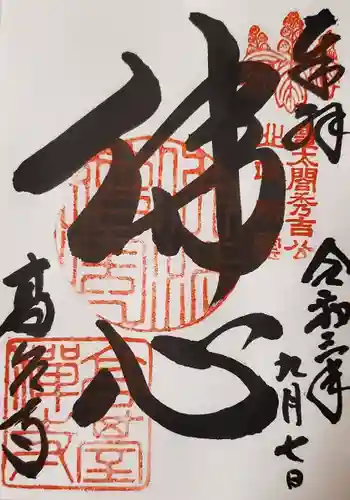 奉拝
豊太閤秀吉公
令和三年
九月七日
佛心
高台寺
高臺
禪寺